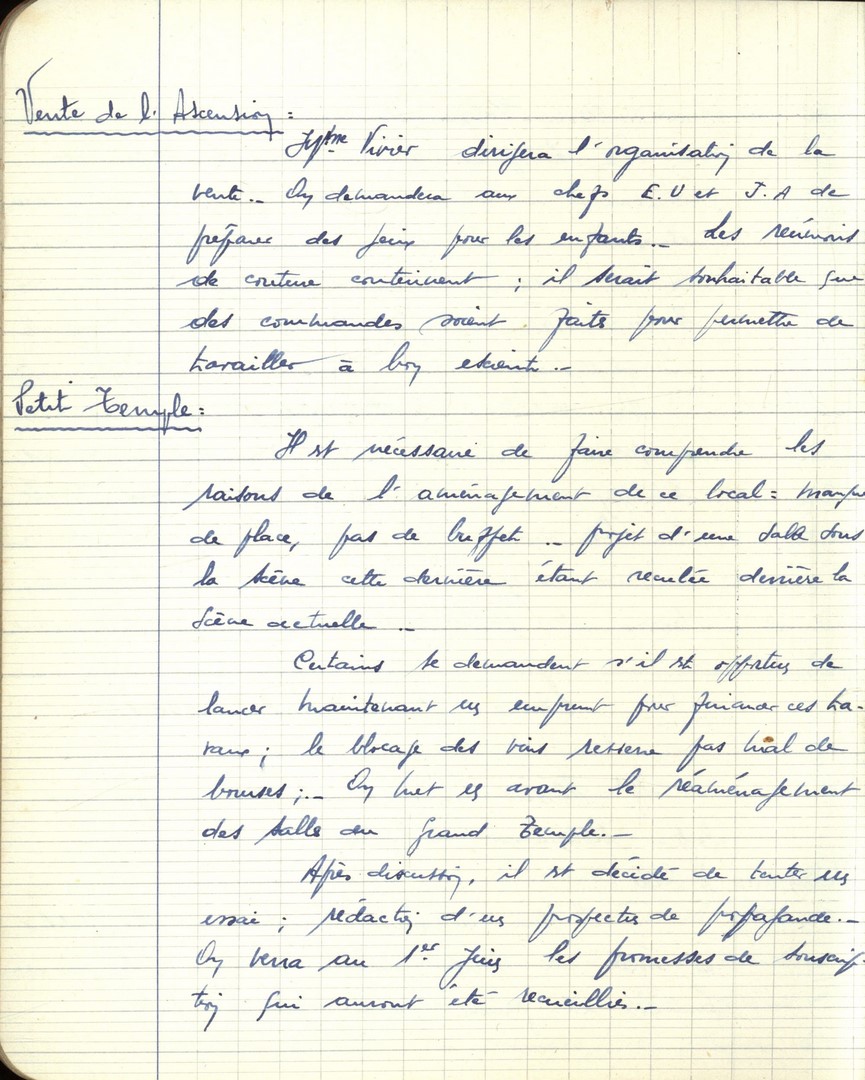 Vente de l'Ascension :
Mme Vivier dirigera l'organisation de la
vente.- On demandera aux chefs E.U et J.A de
préparer des jeux pour les enfants.- Les réunions
de couture continuent ; il serait souhaitable que
des commandes soient faites pour permettre de
travailler à bon escient.-
Petit Temple :
Il est nécessaire de faire comprendre les
raisons de l'aménagement de ce local : manque
de place, pas de buffet .- projet d'une salle sous
la scène cette dernière étant reculée derrière la
scène actuelle .-
Certains se demandent s'il est opportun de
lancer maintenant un emprunt pour financer ces tra-
vaux ; le blocage des vins resserre pas mal de
bourses ;.- On met en avant le réaménagement
des salles du Grand Temple.-
Après discussion, il est décidé de tenter un
essai ; rédaction d'un prospectus de propagande.-
On verra au 1er Juin les promesses de souscrip-
tion qui auront été recueillies.-